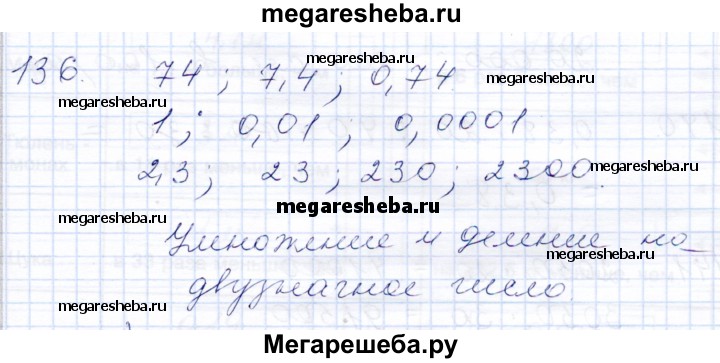 megaresheba.ru
136. 74 ; 7,4 ; 0,74
megaresheba.ru
megaresheba.ru
megaresheba.ru
1 ; 0,01 ; 0,0001
2,3 ; 23 ; 230 ; 2300.
megaresheba.ru
megaresheba.ru
megaresheba.ru
Умножение и деление на
megaresheba.ru
двузначное число.
megaresheba.ru
Мегарешеба.ру